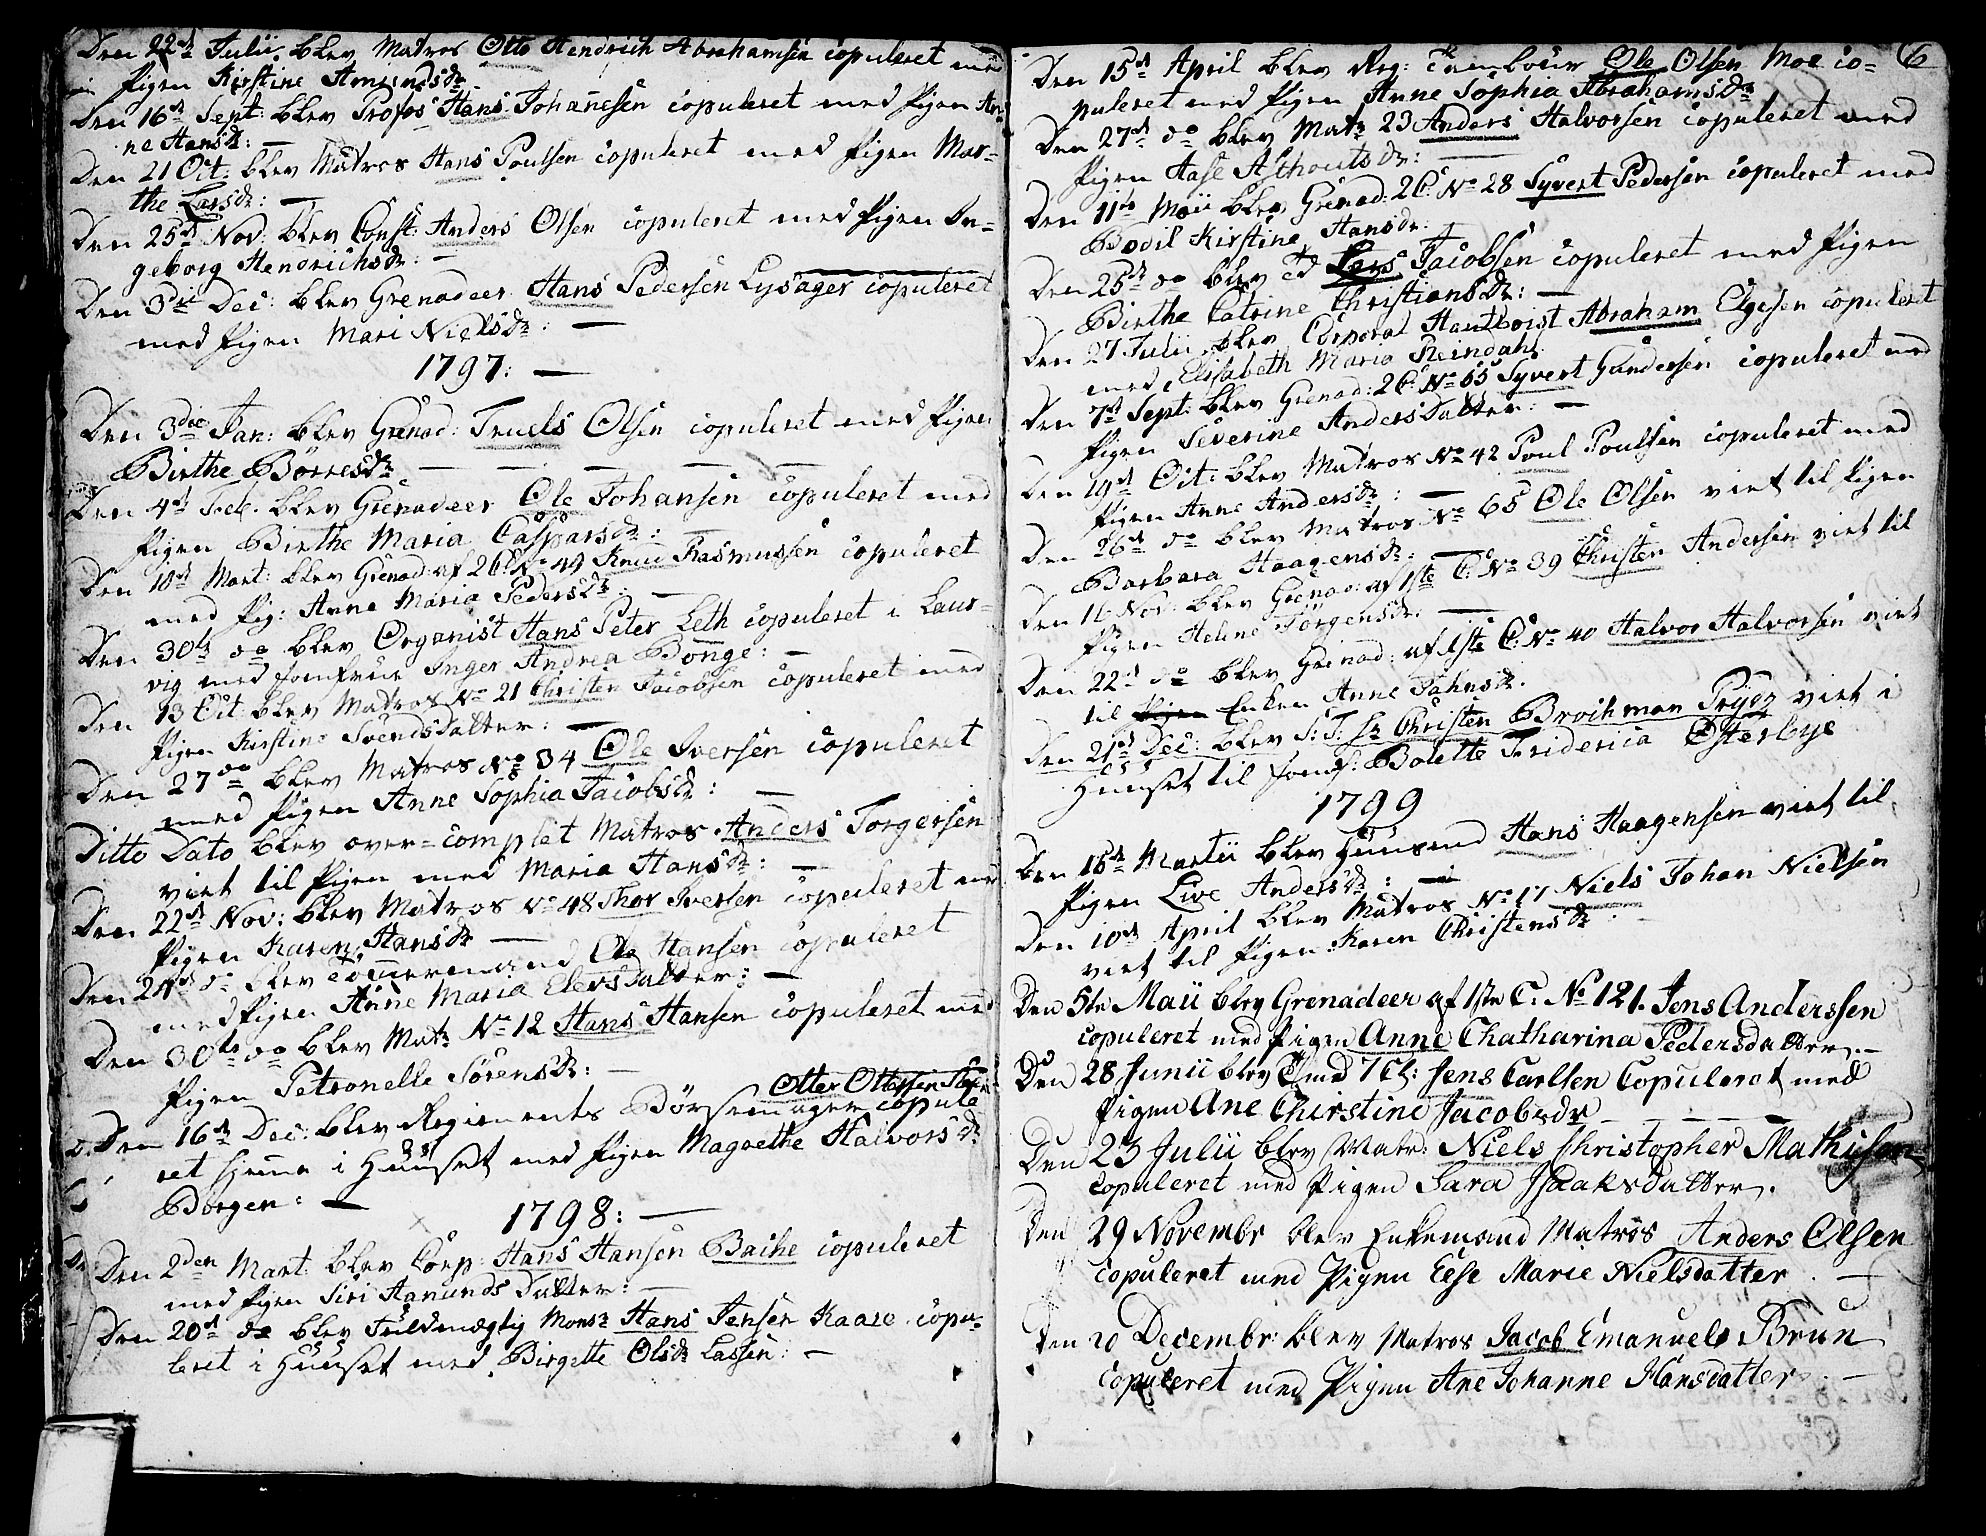 Den 22de Julii blev Matros Otto Hendrich Abrahamsen copuleret med
Pigen Kirstine Amundsdr
Den 16de Sept: blev Profos Hans Johannesen copuleret med Pigen An-
ne Hansdr: —
Den 21 Oct: blev Matros Hans Poulsen copuleret med Pigen Mar-
the Larsdr: —
Den 25de Nov: blev Const: Anders Olsen copuleret med Pigen In-
geborg Hendrichsdr: —
Den 3die Dec: blev Grenadeer Hans Pedersen Lysager copuleret
med Pigen Mari Nielsdr: —
1797: —
Den 3die Jan: blev Grenad: Truels Olsen copuleret med Pigen
Birthe Börresdr — — — — —
Den 4de Feb: blev Grenadeer Ole Johansen copuleret med
Pigen Birthe Maria Caspersdr: —
Den 10de Mart: blev Grenad: af 2 C: No 49 Knud Rasmussen copuleret
med Pig: Anne Maria Pedersdr: —
Den 30te do blev Organist Hans Peter Leth copuleret i Laur-
vig med Jomfrue Inger Andrea Bonge: —
Den 13 Oct: blev Matros No 21 Christen Jacobsen copuleret med
Pigen Kirstine Svendsdatter: —
Den 27 do blev Matros No 34 Ole Iversen copuleret
med Pigen Anne Sophia Jacobsdr: —
Ditto Dato blev over-complet Matros Anders Torgersen
viet til Pigen med Maria Hansdr: —
Den 22de Nov: blev Matros No 48 Thor Iversen copuleret med
Pigen Karen Hansdr —
Den 24de do blev Tömmermand Ole Hansen copuleret
med Pigen Anne Maria Elevsdatter: —
Den 30te do blev Matr No 12 Hans Hansen copuleret med
Pigen Petronelle Sörensdr: —
Otter Ottersen
Den 16de Dec: blev Regiments Börsemager copule
ret hjemme i Huuset med Pigen Magrethe Halvorsdr
Borgen: —
1798: —
Den 2den Mart: blev Corp: Hans Hansen Bache copuleret
med Pigen Siri Aanundsdatter: —
Den 20de do blev Fuldmægtig Monsr Hans Jensen Kaare copu-
leret i Huuset med Birgette Olsdr Lassen: —
6
Den 15de April blev Reg: Tambour Ole Olsen Moe co-
puleret med Pigen Anne Sophia Abrahamsdr
Den 27de do blev Matr 23 Anders Halvorsen copuleret med
Pigen Aase Asthoutsdr: —
Den 11te Maii blev Grenad: 2 C: No 28 Syvert Pedersen copuleret med
Bodil Kirstine Hansdr:
Den 25de do blev Lars Jacobsen copuleret med Pigen
Birthe Catrine Christiansdr: —
Den 27 Julii blev Corporal Hautboist Abraham Elgesen copuleret
med Elisabeth Maria Reindahl
Den 7de Sept: blev Grenad: 2 C: No 55 Syvert Gundersen copuleret med
Pigen Severine Andersdatter: —
Den 19de Oct: blev Matros No 42 Poul Poulsen copuleret med
Pigen Anne Andersdr: —
Den 26de do blev Matros No 65 Ole Olsen viet til Pigen
Barbara Haagensdr: —
Den 11 Nov: blev Grenad: af 1ste C: No 39 Christen Andersen viet til
Pigen Helene Jörgensdr. —
Den 22de do blev Grenad: af 1ste C: No 40 Halvor Halvorsen viet
til Pigen Enken Anne Jahnsdr.
Den 21de Dec: blev S: T: Hr Christen Brochman Prydz viet i
Huuset til Jomf: Bolette Friderica Österbye
1799
Den 15de Martii blev Huusmd Hans Haagensen viet til
Pigen Live Andersdr: —
Den 10de April blev Matros No 17 Niels Johan Nielsen
viet til Pigen Karen Christensdr
Den 5te Maii blev Grenadeer af 1ste C: No 121. Jens Anderssen
copuleret med Pigen Anne Chatharina Pedersdatter. —
Den 28 Junii blev 7 Cl: Jens Carlsen Copuleret med
Pigen Ane Chirstine Jacobsdr — — —
Den 23 Julii blev Matr: Niels Christopher Mathisen
copuleret med Pigen Sara Isaaksdatter.
Den 29 Novembr blev Enkemand Matros Anders Olsen
copuleret med Pigen Else Marie Nielsdatter. —
Den 20 Decembr: blev Matros Jacob Emanuels Brun
copuleret med Pigen Ane Johanne Hansdatter. —